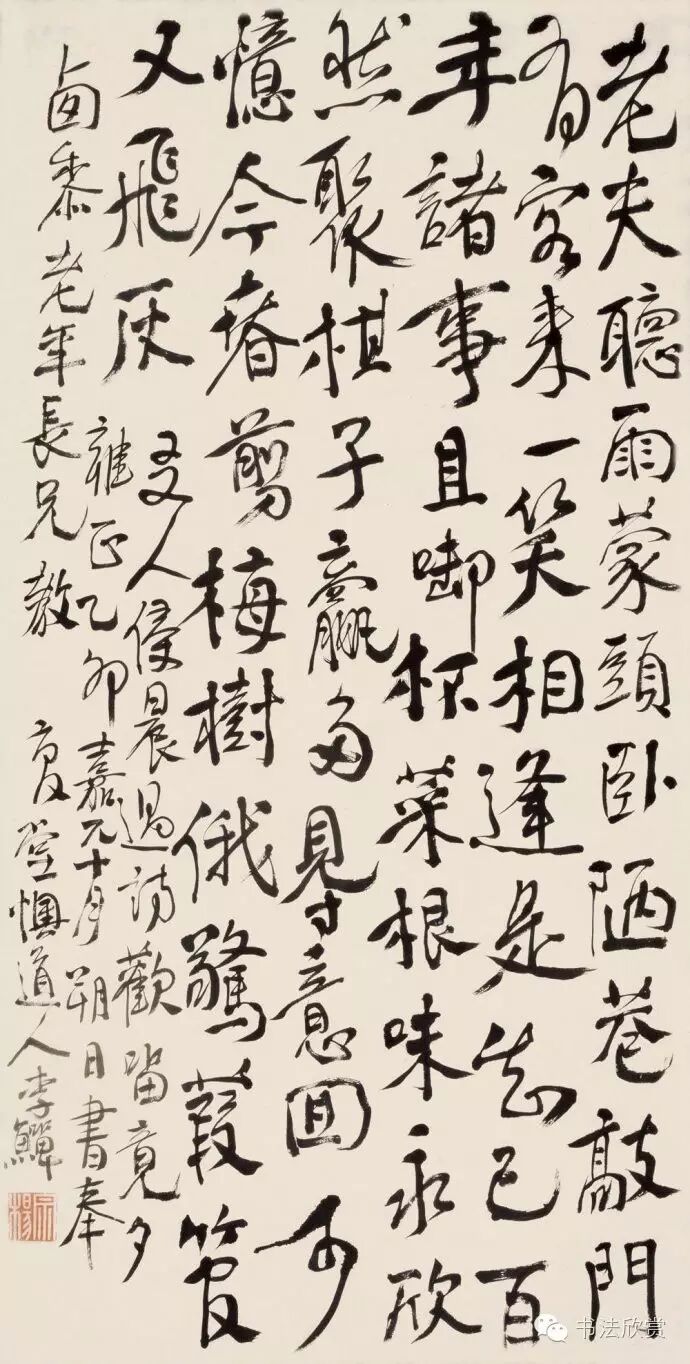 老夫聽雨蒙頭卧陋巷敲門
有客来一笑相逢是知己百
年諸事且啣杯菜根味永欣
然聚棋子贏多得意回可
憶今春剪梅樹俄驚葭管
又飛灰
友人侵晨過訪歡留竟夕
雍正乙卯嘉十月朔日書奉
鹵黍老年長兄教 復堂懊道人李鱓
宗揚
书法欣赏